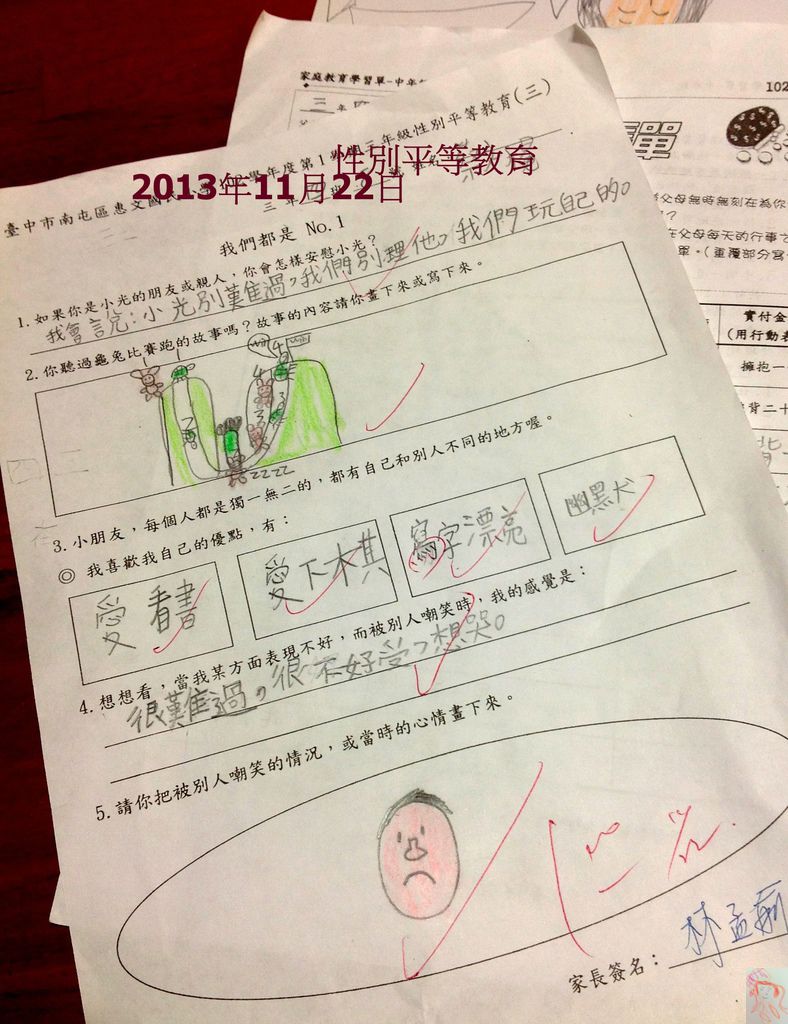 家庭教育學習單-中年
102
單
性別平等教育
2013年11月22日
臺中市南屯區惠文國民 學年度第1學期三年級性別平等教育(三)
三年四班
我們都是 No.1
1.如果你是小光的朋友或親人,你會怎樣安慰小光?
我會說:小光別難過,我們別理他。我們玩自己的。
2.你聽過龜兔比賽跑的故事嗎?故事的內容請你畫下來或寫下來。
3.小朋友,每個人都是獨一無二的,都有自己和別人不同的地方喔。
◎ 我喜歡我自己的優點,有:
愛看書
愛下木棋
寫字漂亮
幽黑犬
4.想想看,當我某方面表現不好,而被別人嘲笑時,我的感覺是:
很難過,很不好受,想哭。
5.請你把被別人嘲笑的情況,或當時的心情畫下來。
家長簽名:
林孟
父母無時無刻在為你
?
在父母每天的行事
單。(重覆部分寫
實付金
(用行動表
擁抱一
背二十